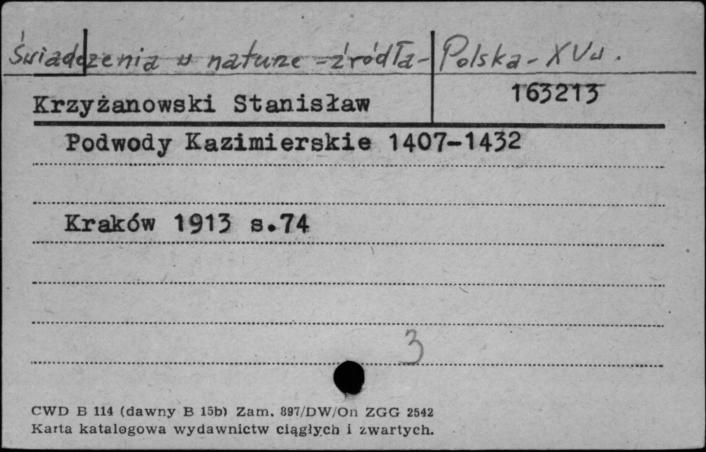 Świadczenia w naturze - źródła - Polska - XV w.
Krzyżanowski Stanisław 163213
Podwody Kazimierskie 1407-1432
Kraków 1913 s.74
3
CWD B 114 (dawny B 15b) Zam. 897/DW/On ZGG 2542
Karta katalogowa wydawnictw ciągłych i zwartych.